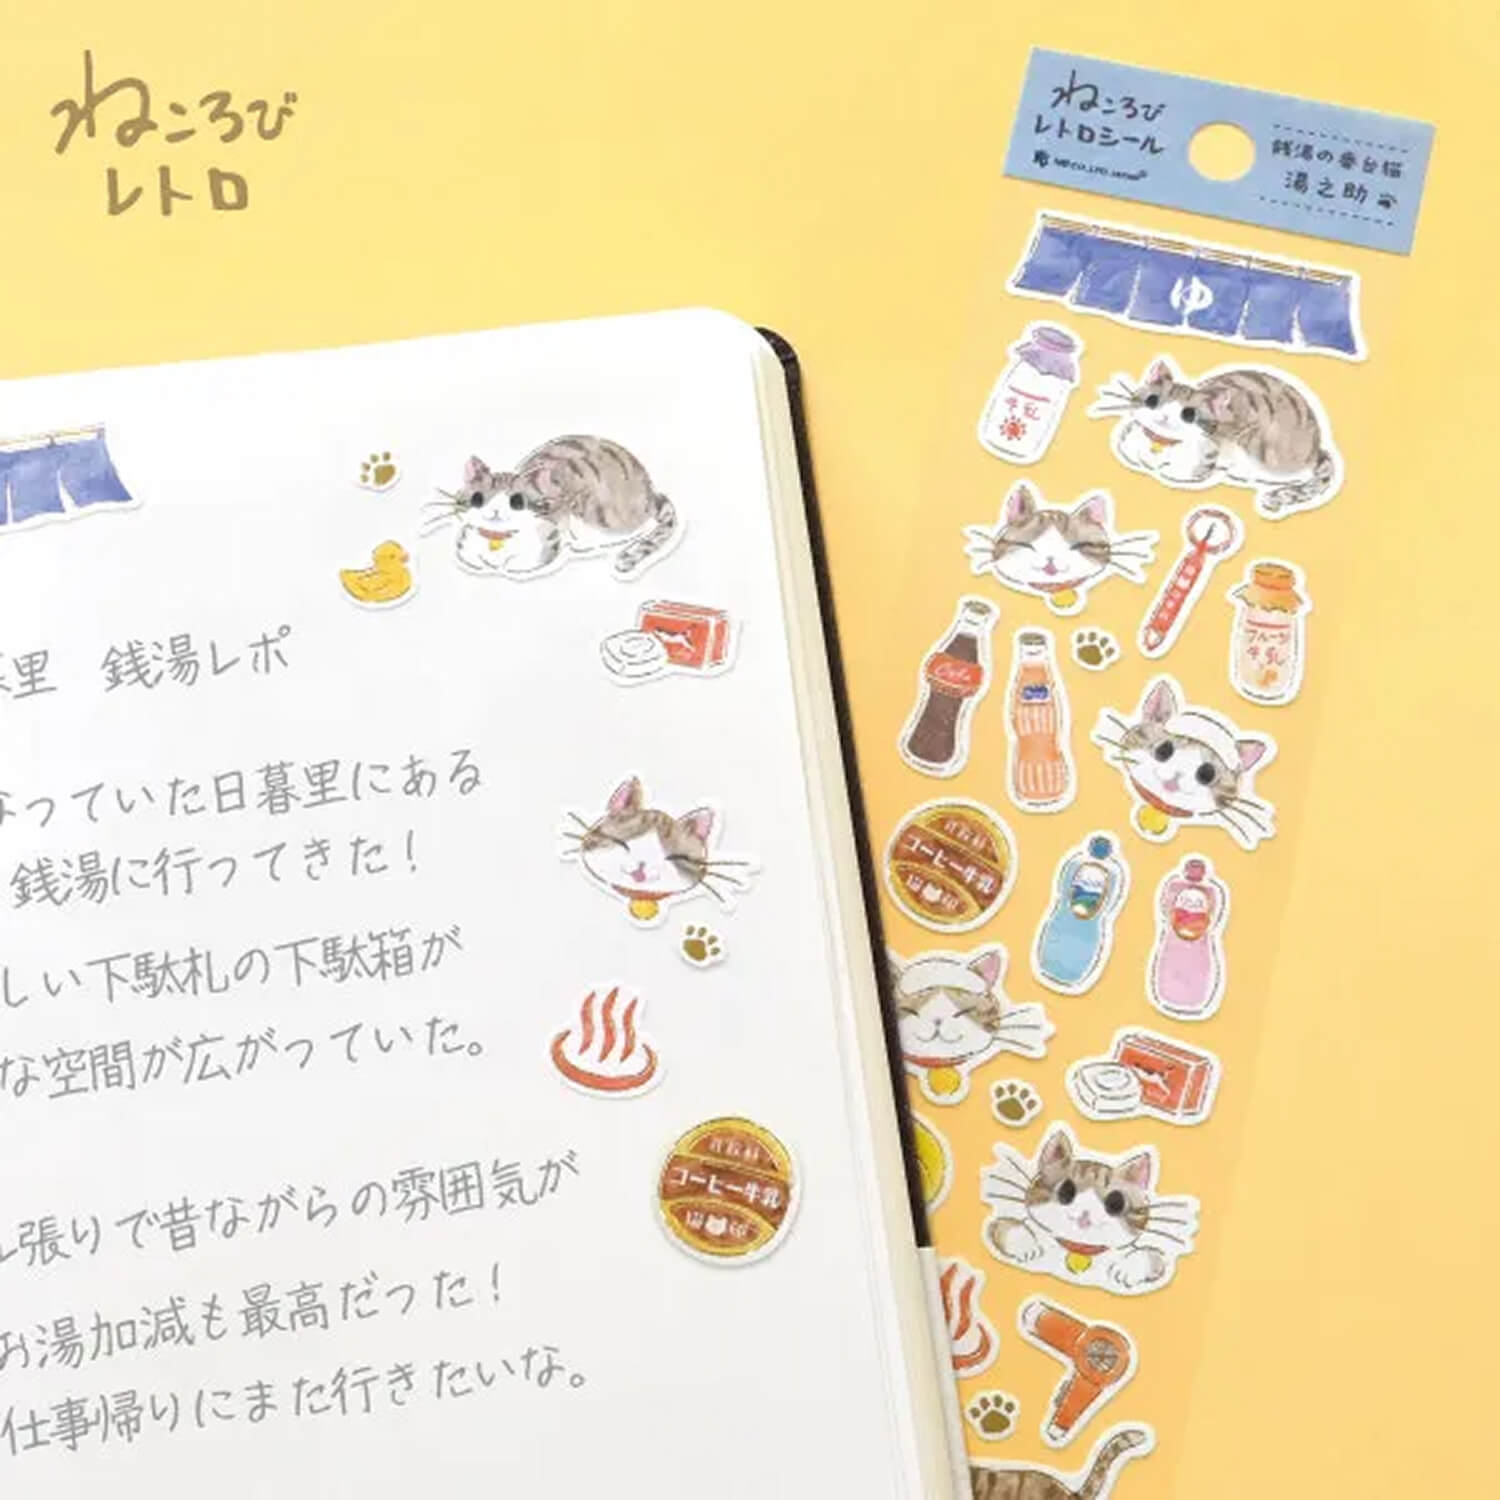 ねころび
レトロ
ねころび
レトロシール
銭湯の番台猫
湯之助
ゆ
牛乳
フルーツ
牛乳
Cola
コーヒー牛乳
猫印
里 銭湯レポ
なっていた日暮里にある
銭湯に行ってきた！
しい下駄札の下駄箱が
な空間が広がっていた。
コーヒー牛乳
猫印
張りで昔ながらの雰囲気が
お湯加減も最高だった！
仕事帰りにまた行きたいな。